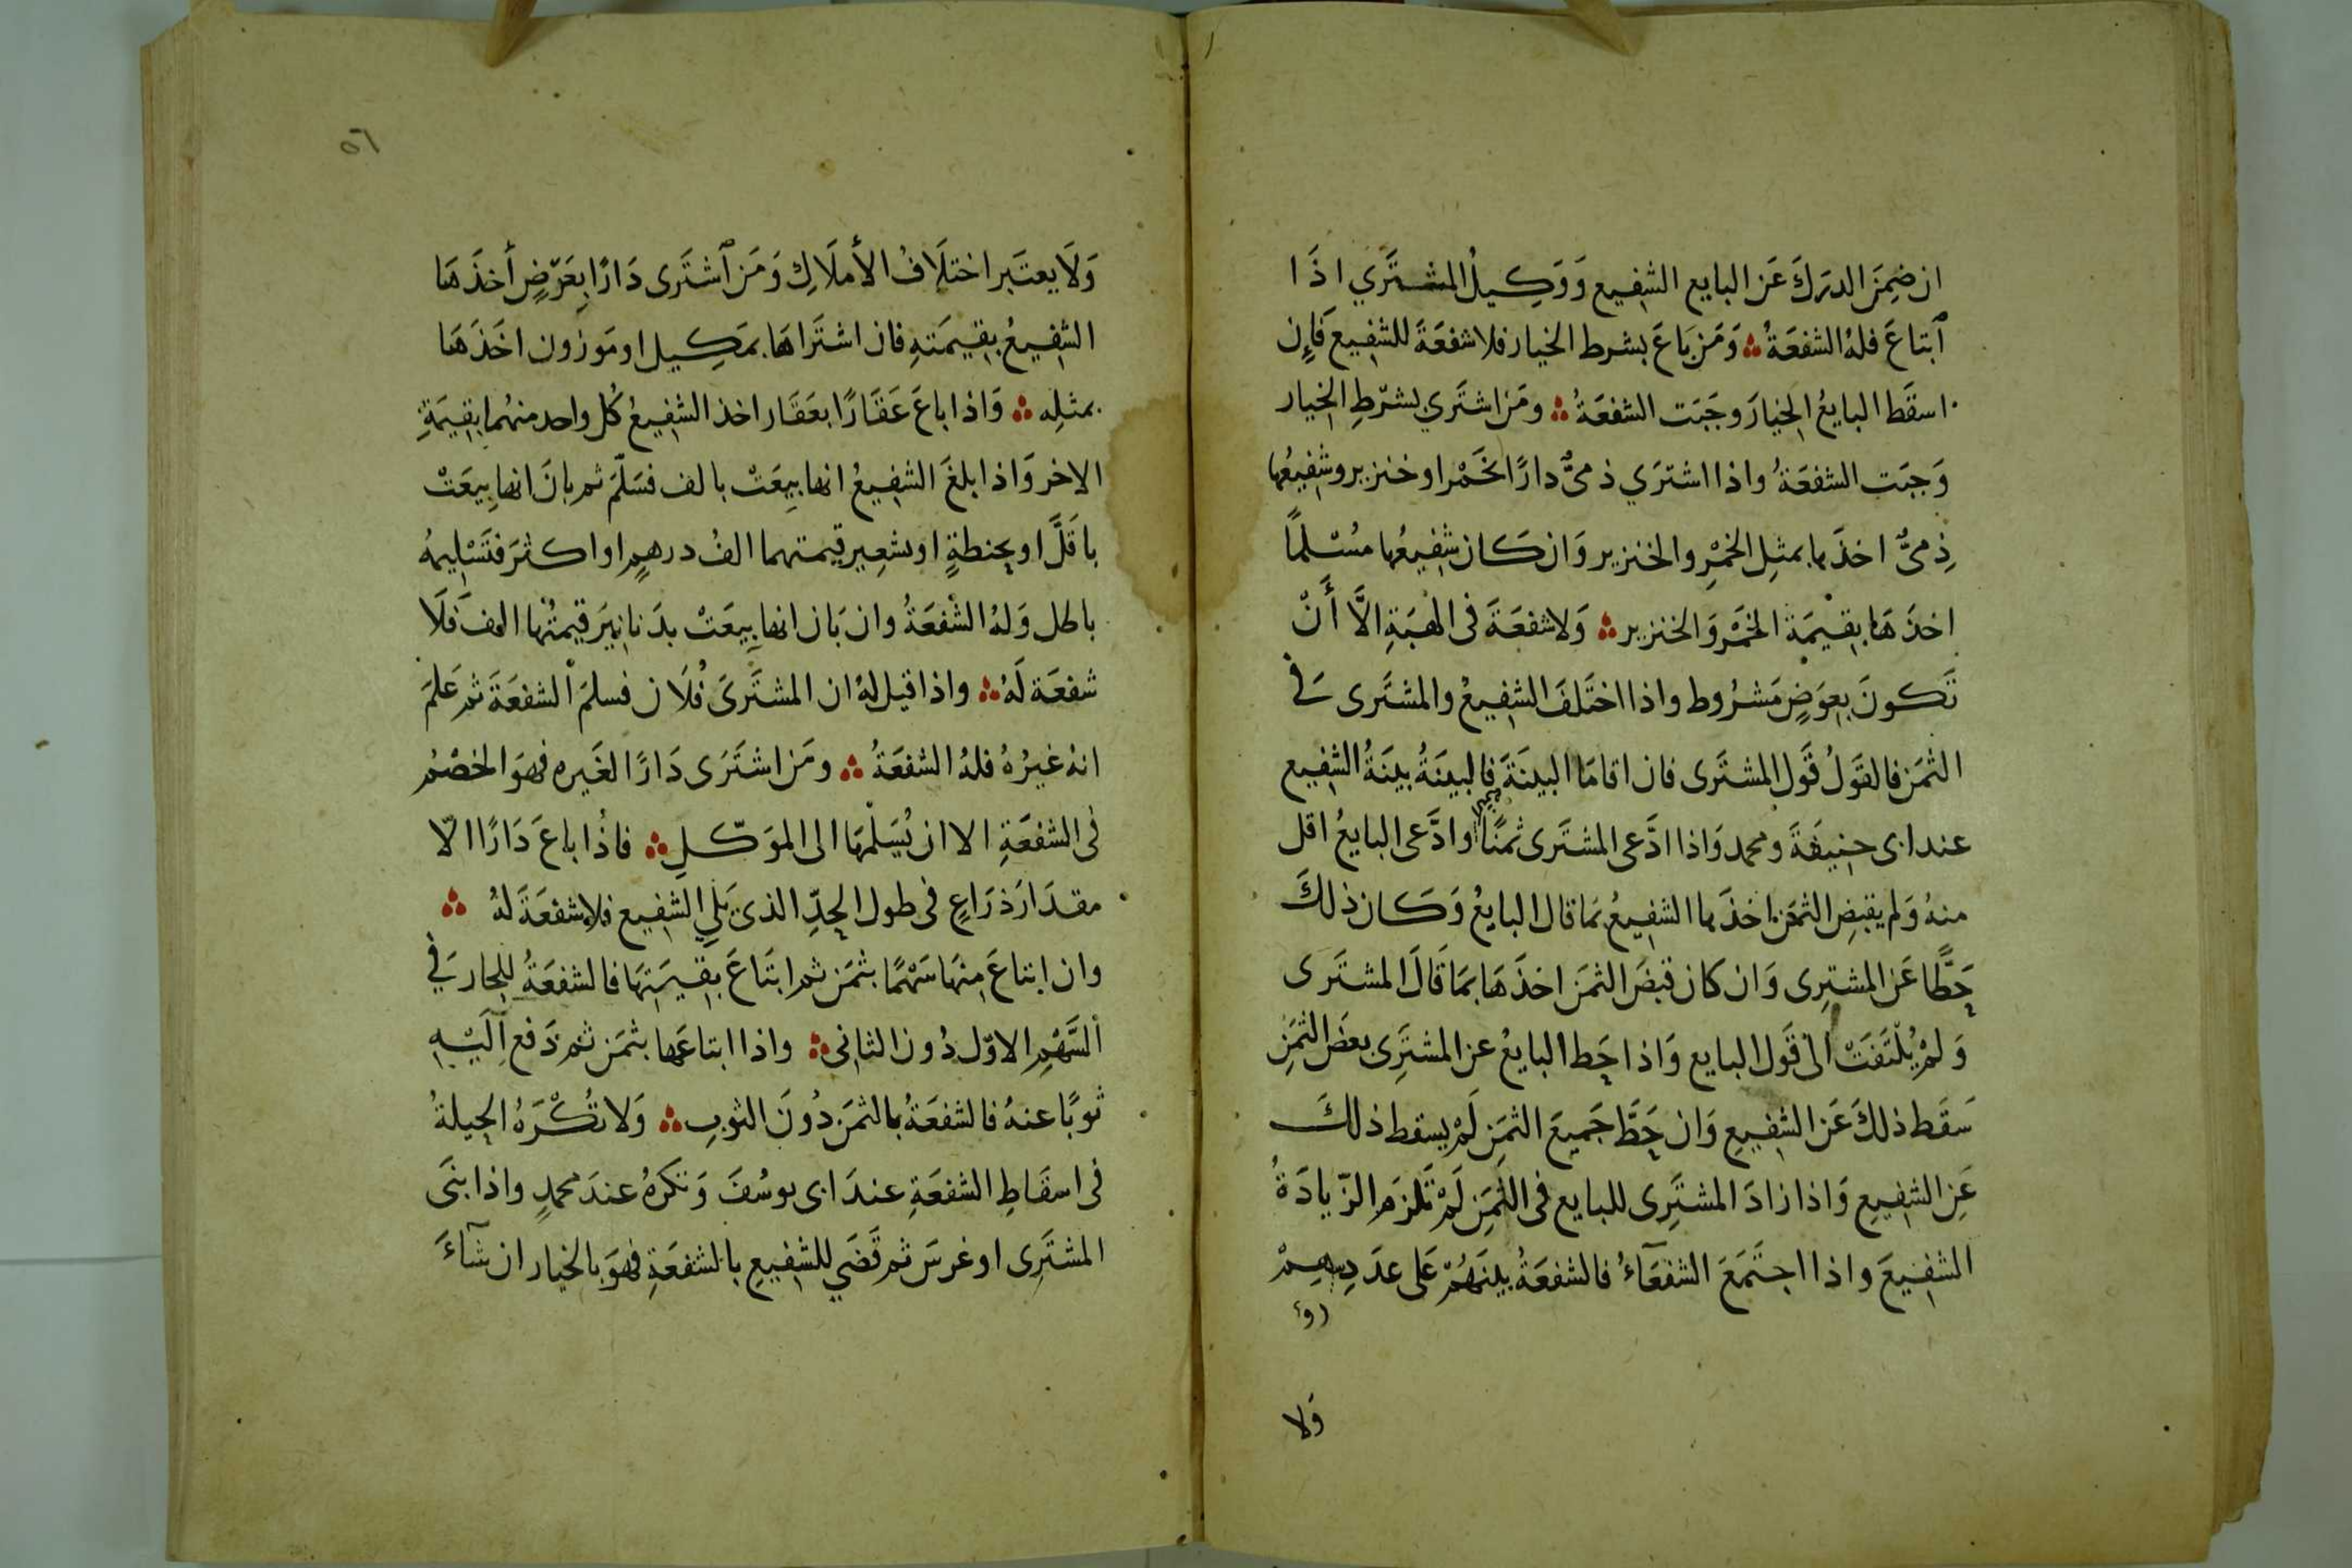 ان ضِمَنَ الدرَكَ عَن البايع الشفِيع وَوَكِيلُ المشترَي اذَا
اَبتاعَ فلهُ الشفعَةُ وَمَن بَاعَ بشرط الخيار فلا شفعَةَ للشفِيع فَاِن
اسقَط البايعُ الخِيارَ وجَبَت الشفعَةُ ومَن اشترَي بشرْطِ الخِيار
وَجبَت الشفعَةُ واذا اشترَي ذميٌّ دارًا بخَمْر او خنزير وشفِيعُها
ذِميٌّ اخذَها بمثلِ الخمْرِ والخنزير وَان كَان شفِيعُها مسُلمًا
اخذَهَا بقِيمَة الخَمْر وَالخنزير وَلا شفعَةَ فى الهبَةِ الاَّ أَنّ
تَكونَ بِعِوَضٍ مَشرُوط واذا اختَلفَ الشفِيعُ والمشترى فى
الثمَن فالقوَلُ قَول المشترَى فان اقامَا البينَةَ فالبينَةُ بينَةُ الشفِيع
عند ابى حنِيفَةَ ومحمد وَاذا ادَّعى المشترَى ثمَنًا وادَّعى البايعُ اقل
منهُ وَلم يقبضِ الثمَن اخذَها الشفِيعُ بمَا قال البايعُ وَكَان ذلكَ
حَطًّا عَن المشترِى وَان كان قبضَ الثمَن اخذَهَا بمَا قَالَ المشترَى
وَلمْ يُلْتَفَتْ الى قَول البايع وَاذا حَط البايعُ عن المشترَى بعضَ الثمَنِ
سَقَط ذلكَ عَن الشفِيعِ وَان حَطَّ جَمِيعَ الثمَنِ لَمْ يسقط ذلكَ
عَنِ الشفِيعِ وَاذا زادَ المشترَى للبايع فى الثمَنِ لَمْ تَلزمِ الزّيادَةُ
الشفِيعَ واذا اجتَمَعَ الشفعَآءُ فالشفعَةُ بينَهُمْ عَلى عدَد رؤسهِمْ
وَلا
٥٦
وَلَا يعتَبر اختلَافُ الأملَاكِ وَمَن اَشتَرى دَارًا بِعَرَضٍ أخذَهَا
الشفِيعُ بقِيمَتهِ فان اشتَرَاهَا بمَكِيل او مَوزون اخَذَهَا
بمثلِه وَاذا باعَ عَقَارًا بعَقَار اخذ الشفِيعُ كُل واحد منهُما بقِيمَةِ
الاخر وَاذا بلغَ الشفِيعُ انها بِيعَتْ بالف فسَلّمَ ثم بانَ انها بِيعَتْ
باقَلَّ او بحنطةٍ او بشعِير قيمتهما الفُ درهمٍ او اكثرَ فتَسْلِيمهُ
باطل وَلهُ الشفعَةُ وان بَان انها بِيعَتْ بدَنانِيَر قيمتُها الف فَلَا
شفعَة لَهُ واذا قيل لهُ ان المشترَىَ فُلَان فسلمَ الشفعَةَ ثم عَلمَ
انهُ غيرُهُ فلهُ الشفعَةُ ومَن اشتَرَى دَارًا لغَيره فهوَ الخصْمُ
فى الشفعَةِ الا ان يُسَلّمَهَا الى الموَكّلِ فاذُا باعَ دَارًا الاّ
مقدَارَ ذرَاعٍ فى طول الحَدِّ الذى يَلِي الشفِيع فلا شفعَةَ لهُ
وان ابتاعَ مِنهَا سَهْمًا بثمَن ثم ابتَاعَ بقِيتَهَا فالشفعَةُ للجار فِي
اَلسَّهْمِ الاوّل دُون الثانى واذا ابتاعَها بثمَن ثم دَفع اِلَيْهِ
ثوبًا عنهُ فالشفعَةُ بالثمَن دُونَ الثوبِ وَلا تُكْرَهُ الحِيلةُ
فى اسقَاطِ الشفعَةِ عندَ ابى يوسُفَ وَتكرَهُ عندَ محمدٍ واذا بنَى
المشترَى او غرسَ ثم قَضَي للشفِيعِ بالشفعَةِ فهوَ بالخيار ان شَآءَ